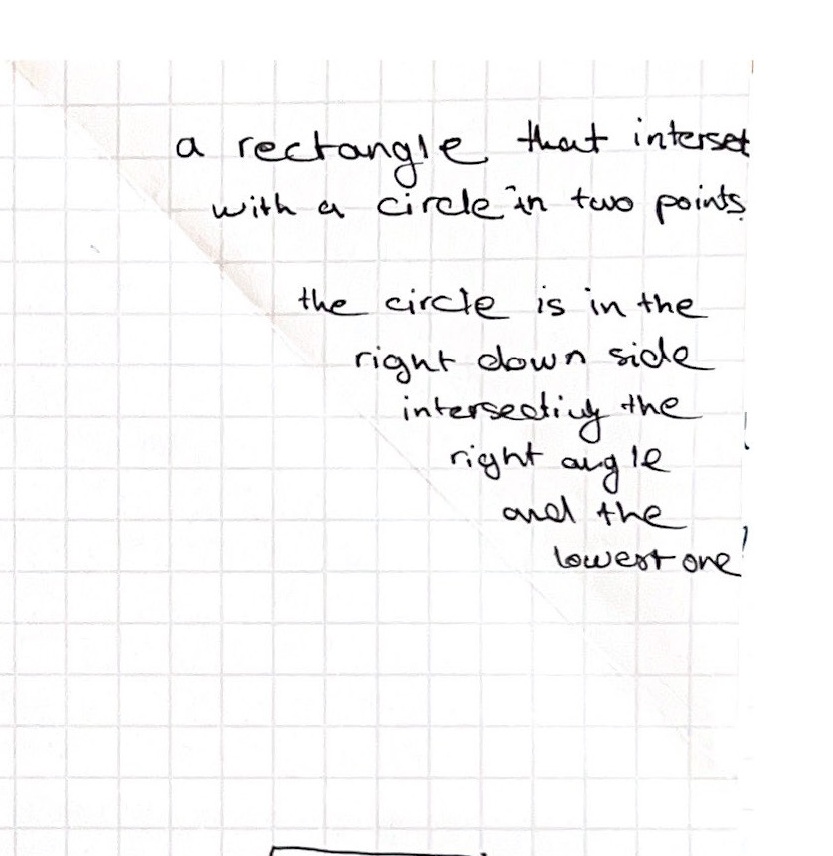 a rectangle that interset
with a circle in two points
the circle is in the
right down side
intersecting the
right angle
and the
lowest one